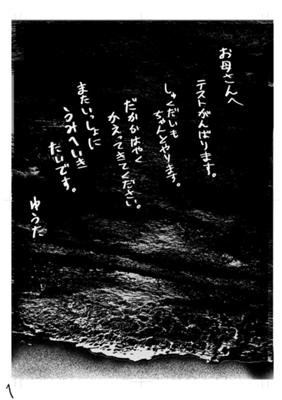 お母さんへ
テストがんばります。
しゅくだいも
ちゃんとやります。
だからはやく
かえってきてください。
またいっしょに
うみへいき
たいです。
ゆうた